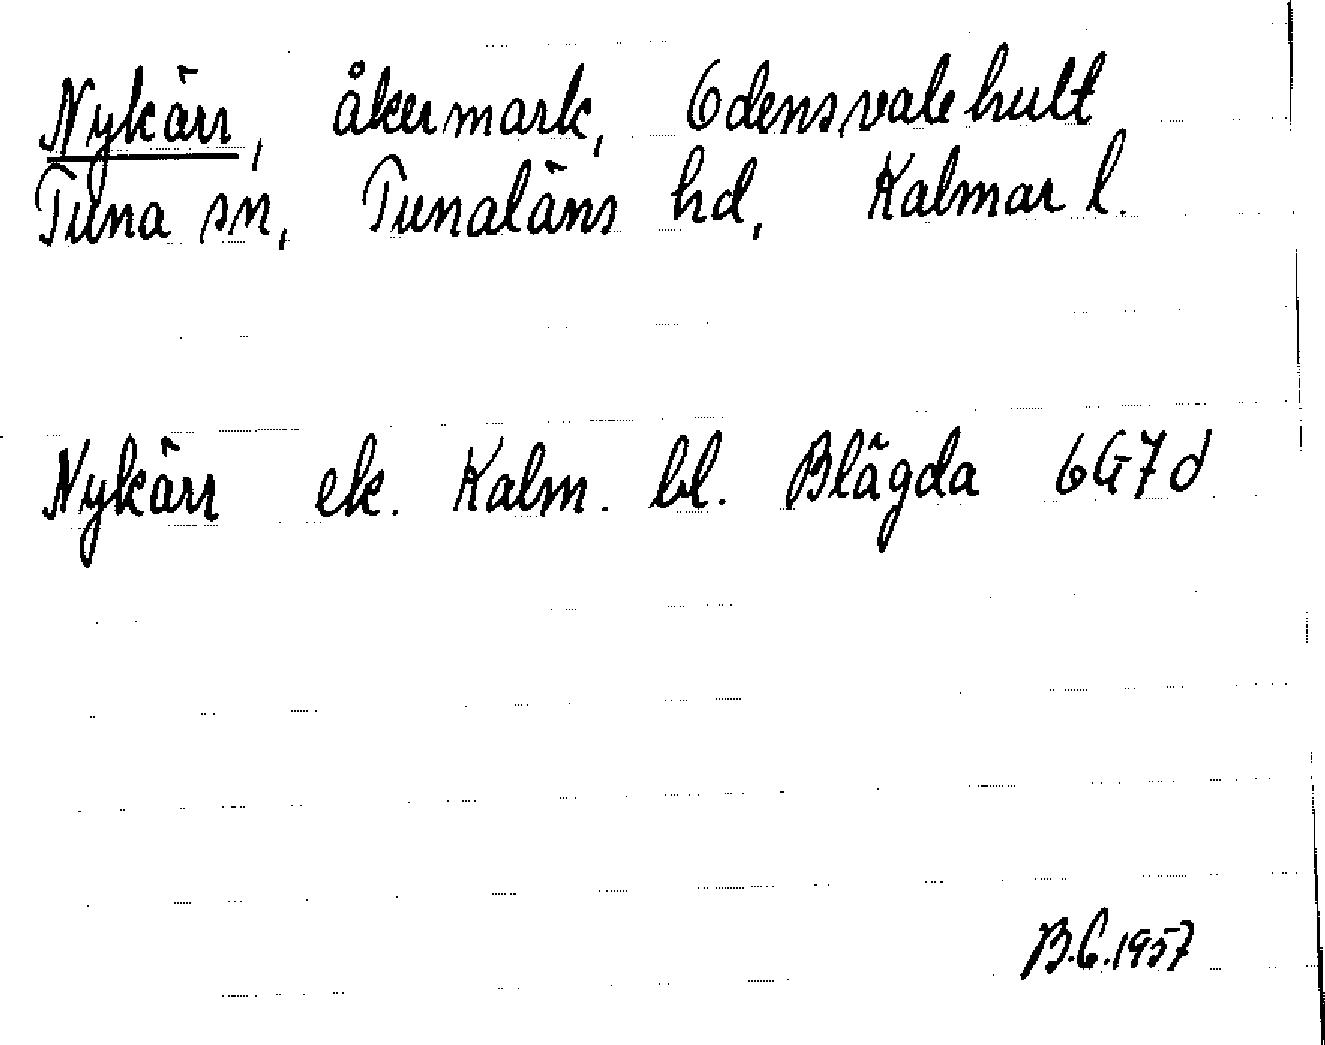 Nykärr, åkermark, Odensvalehult
Tuna sn, Tunaläns hd, Kalmar l.
Nykärr ek. Kalm. bl. Blägda 6G7d
B.E.1957